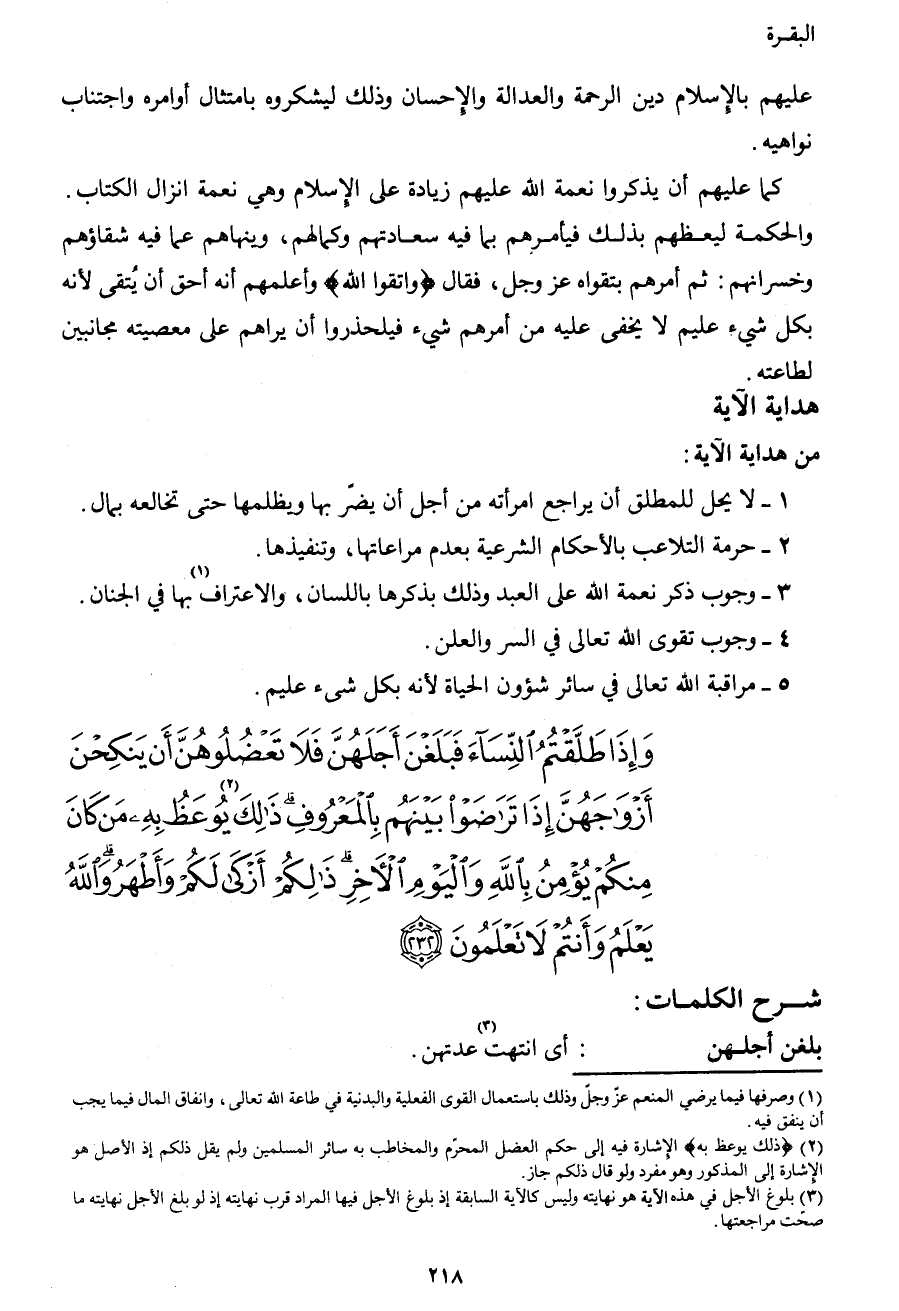 البقـرة
عليهم بالإسلام دين الرحمة والعدالة والإحسان وذلك ليشكروه بامتثال أوامره واجتناب
نواهيه .
كما عليهم أن يذكروا نعمة الله عليهم زيادة على الإسلام وهي نعمة انزال الكتاب .
والحكمـة ليعـظهم بذلـك فيأمـرهم بما فيه سعـادتهم وكمالهم، وينهاهم عما فيه شقاؤهم
وخسرانهم : ثم أمرهم بتقواه عز وجل، فقال ﴿واتقوا الله﴾ وأعلمهم أنه أحق أن يُتقى لأنه
بكل شيء عليم لا يخفى عليه من أمرهم شيء فيلحذروا أن يراهم على معصيته مجانبين
لطاعته .
هداية الآية
من هداية الآية :
١ ـ لا يحل للمطلق أن يراجع امرأته من أجل أن يضرّ بها ويظلمها حتى تخالعه بمال .
٢ ـ حرمة التلاعب بالأحكام الشرعية بعدم مراعاتها، وتنفيذها .
٣ ـ وجوب ذكر نعمة الله على العبد وذلك بذكرها باللسان، والاعتراف(١) بها في الجنان .
٤ ـ وجوب تقوى الله تعالى في السر والعلن .
٥ ـ مراقبة الله تعالى في سائر شؤون الحياة لأنه بكل شىء عليم .
وَإِذَا طَلَّقْتُمُ ٱلنِّسَآءَ فَبَلَغْنَ أَجَلَهُنَّ فَلَا تَعْضُلُوهُنَّ أَن يَنكِحْنَ
أَزْوَٰجَهُنَّ إِذَا تَرَٰضَوْا۟ بَيْنَهُم بِٱلْمَعْرُوفِ ۗ ذَٰلِكَ(٢) يُوعَظُ بِهِۦ مَن كَانَ
مِنكُمْ يُؤْمِنُ بِٱللَّهِ وَٱلْيَوْمِ ٱلْأَخِرِ ۗ ذَٰلِكُمْ أَزْكَىٰ لَكُمْ وَأَطْهَرُ ۗ وَٱللَّهُ
يَعْلَمُ وَأَنتُمْ لَا تَعْلَمُونَ ٢٣٢
شـرح الكلمـات :
بلغن أجلـهن : أى انتهت(٣) عدتهن .
(١) وصرفها فيما يرضي المنعم عزّ وجلّ وذلك باستعمال القوى الفعلية والبدنية في طاعة الله تعالى، وانفاق المال فيما يجب
أن ينفق فيه .
(٢) ﴿ذلك يوعظ به﴾ الإشارة فيه إلى حكم العضل المحرّم والمخاطب به سائر المسلمين ولم يقل ذلكم إذ الأصل هو
الإشارة إلى المذكور وهو مفرد ولو قال ذلكم جاز .
(٣) بلوغ الأجل في هذه الآية هو نهايته وليس كالآية السابقة إذ بلوغ الأجل فيها المراد قرب نهايته إذ لو بلغ الأجل نهايته ما
صحّت مراجعتها .
٢١٨